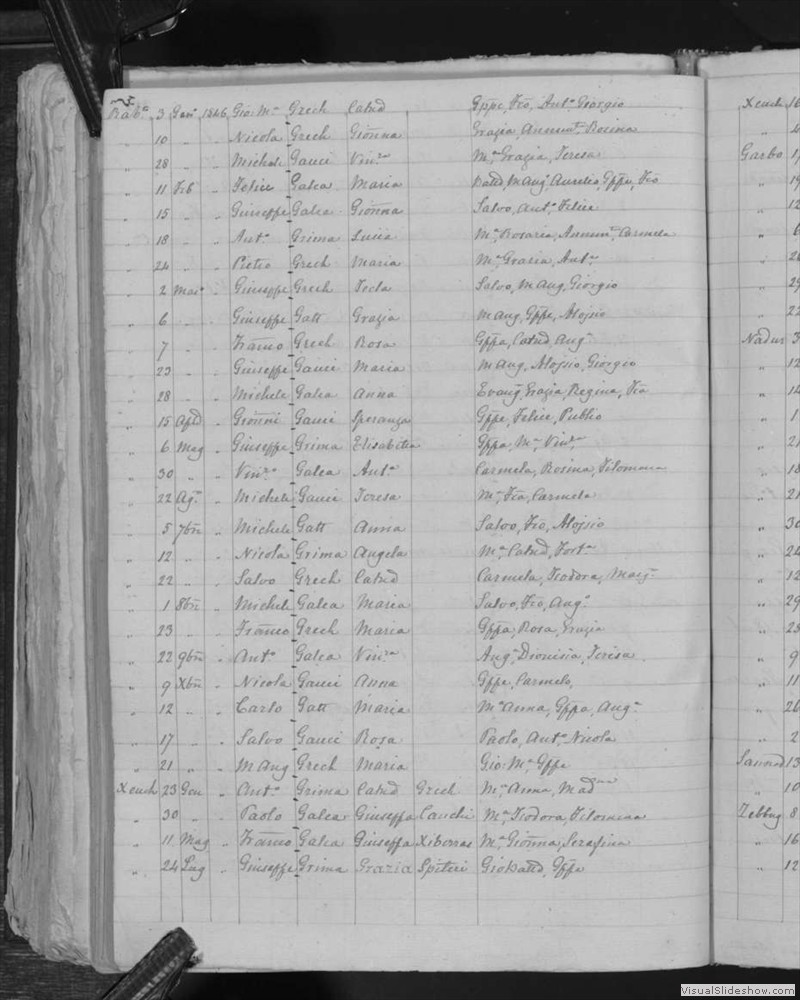 Rab.o 3 Gen.o 1846 Gio: M.a Grech Catnd Gppe, Fco, Ant.o Giorgio
" 10 " " Nicola Grech Gionna Grazia, Annun.ta Rosina
" 28 " " Michele Gauci Vin.za M.a Grazia, Teresa
" 11 Feb " Felice Galea Maria Batta, M Ang, Aurelio, Gppe, Fco
" 15 " " Giuseppe Galea Gionna Salvo, Ant.o Felice
" 18 " " Ant.o Grima Lucia M.a Rosaria, Annun.ta Carmela
" 24 " " Pietro Grech Maria M.a Grazia, Ant.a
" 2 Mar.o " Giuseppe Grech Tecla Salvo, M Ang, Giorgio
" 6 " " Giuseppe Gatt Grazia M Ang, Gppe, Aloisio
" 7 " " Franco Grech Rosa Gppa, Catnd, Ang.a
" 23 " " Giuseppe Gauci Maria M Ang, Aloisio, Giorgio
" 28 " " Michele Galea Anna Evang, Grazia, Regina, Fca
" 15 Apl " Gionni Gauci Speranza Gppe, Felice, Publio
" 6 Mag " Giuseppe Grima Elisabetta Gppa, M.a Vin.a
" 30 " " Vin.zo Galea Ant.a Carmela, Rosina, Filomena
" 22 Ag.o " Michele Gauci Teresa M.a Fca, Carmela
" 5 7bre " Michele Gatt Anna Salvo, Fco, Aloisio
" 12 " " Nicola Grima Angela M.a Catnd, Fort.a
" 22 " " Salvo Grech Catnd Carmela, Teodora, Marg.
" 1 8bre " Michele Galea Maria Salvo, Fco, Ang.o
" 23 " " Franco Grech Maria Gppa, Rosa, Grazia
" 22 9bre " Ant.o Galea Vin.za Ang.a Dionisia, Teresa
" 9 Xbre " Nicola Gauci Anna Gppe, Carmelo,
" 12 " " Carlo Gatt Maria M.a Anna, Gppa, Ang.a
" 17 " " Salvo Gauci Rosa Paolo, Ant.o Nicola
" 21 " " M Ang Grech Maria Gio: M.a Gppe
Xeuch 23 Gen " Ant.o Grima Catnd Grech M.a Anna, Mad.na
" 30 " " Paolo Galea Giuseppa Cauchi M.a Teodora, Filomena
" 11 Mag " Franco Galea Giuseppa Xiberras M.a Gionna, Serafina
" 24 Lug " Giuseppe Grima Grazia Spiteri Gio Batta, Gppe
Xeuch 16
" 4
Garbo 1
" 19
" 12
" 6
" 26
" 29
" 22
Nadur 3
" 12
" 14
" 1
" 21
" 18
" 21
" 30
" 24
" 12
" 29
" 23
" 9
" 11
" 26
" 2
Sannad 13
" 10
Zebbug 8
" 16
" 12
VisualSlideshow.com